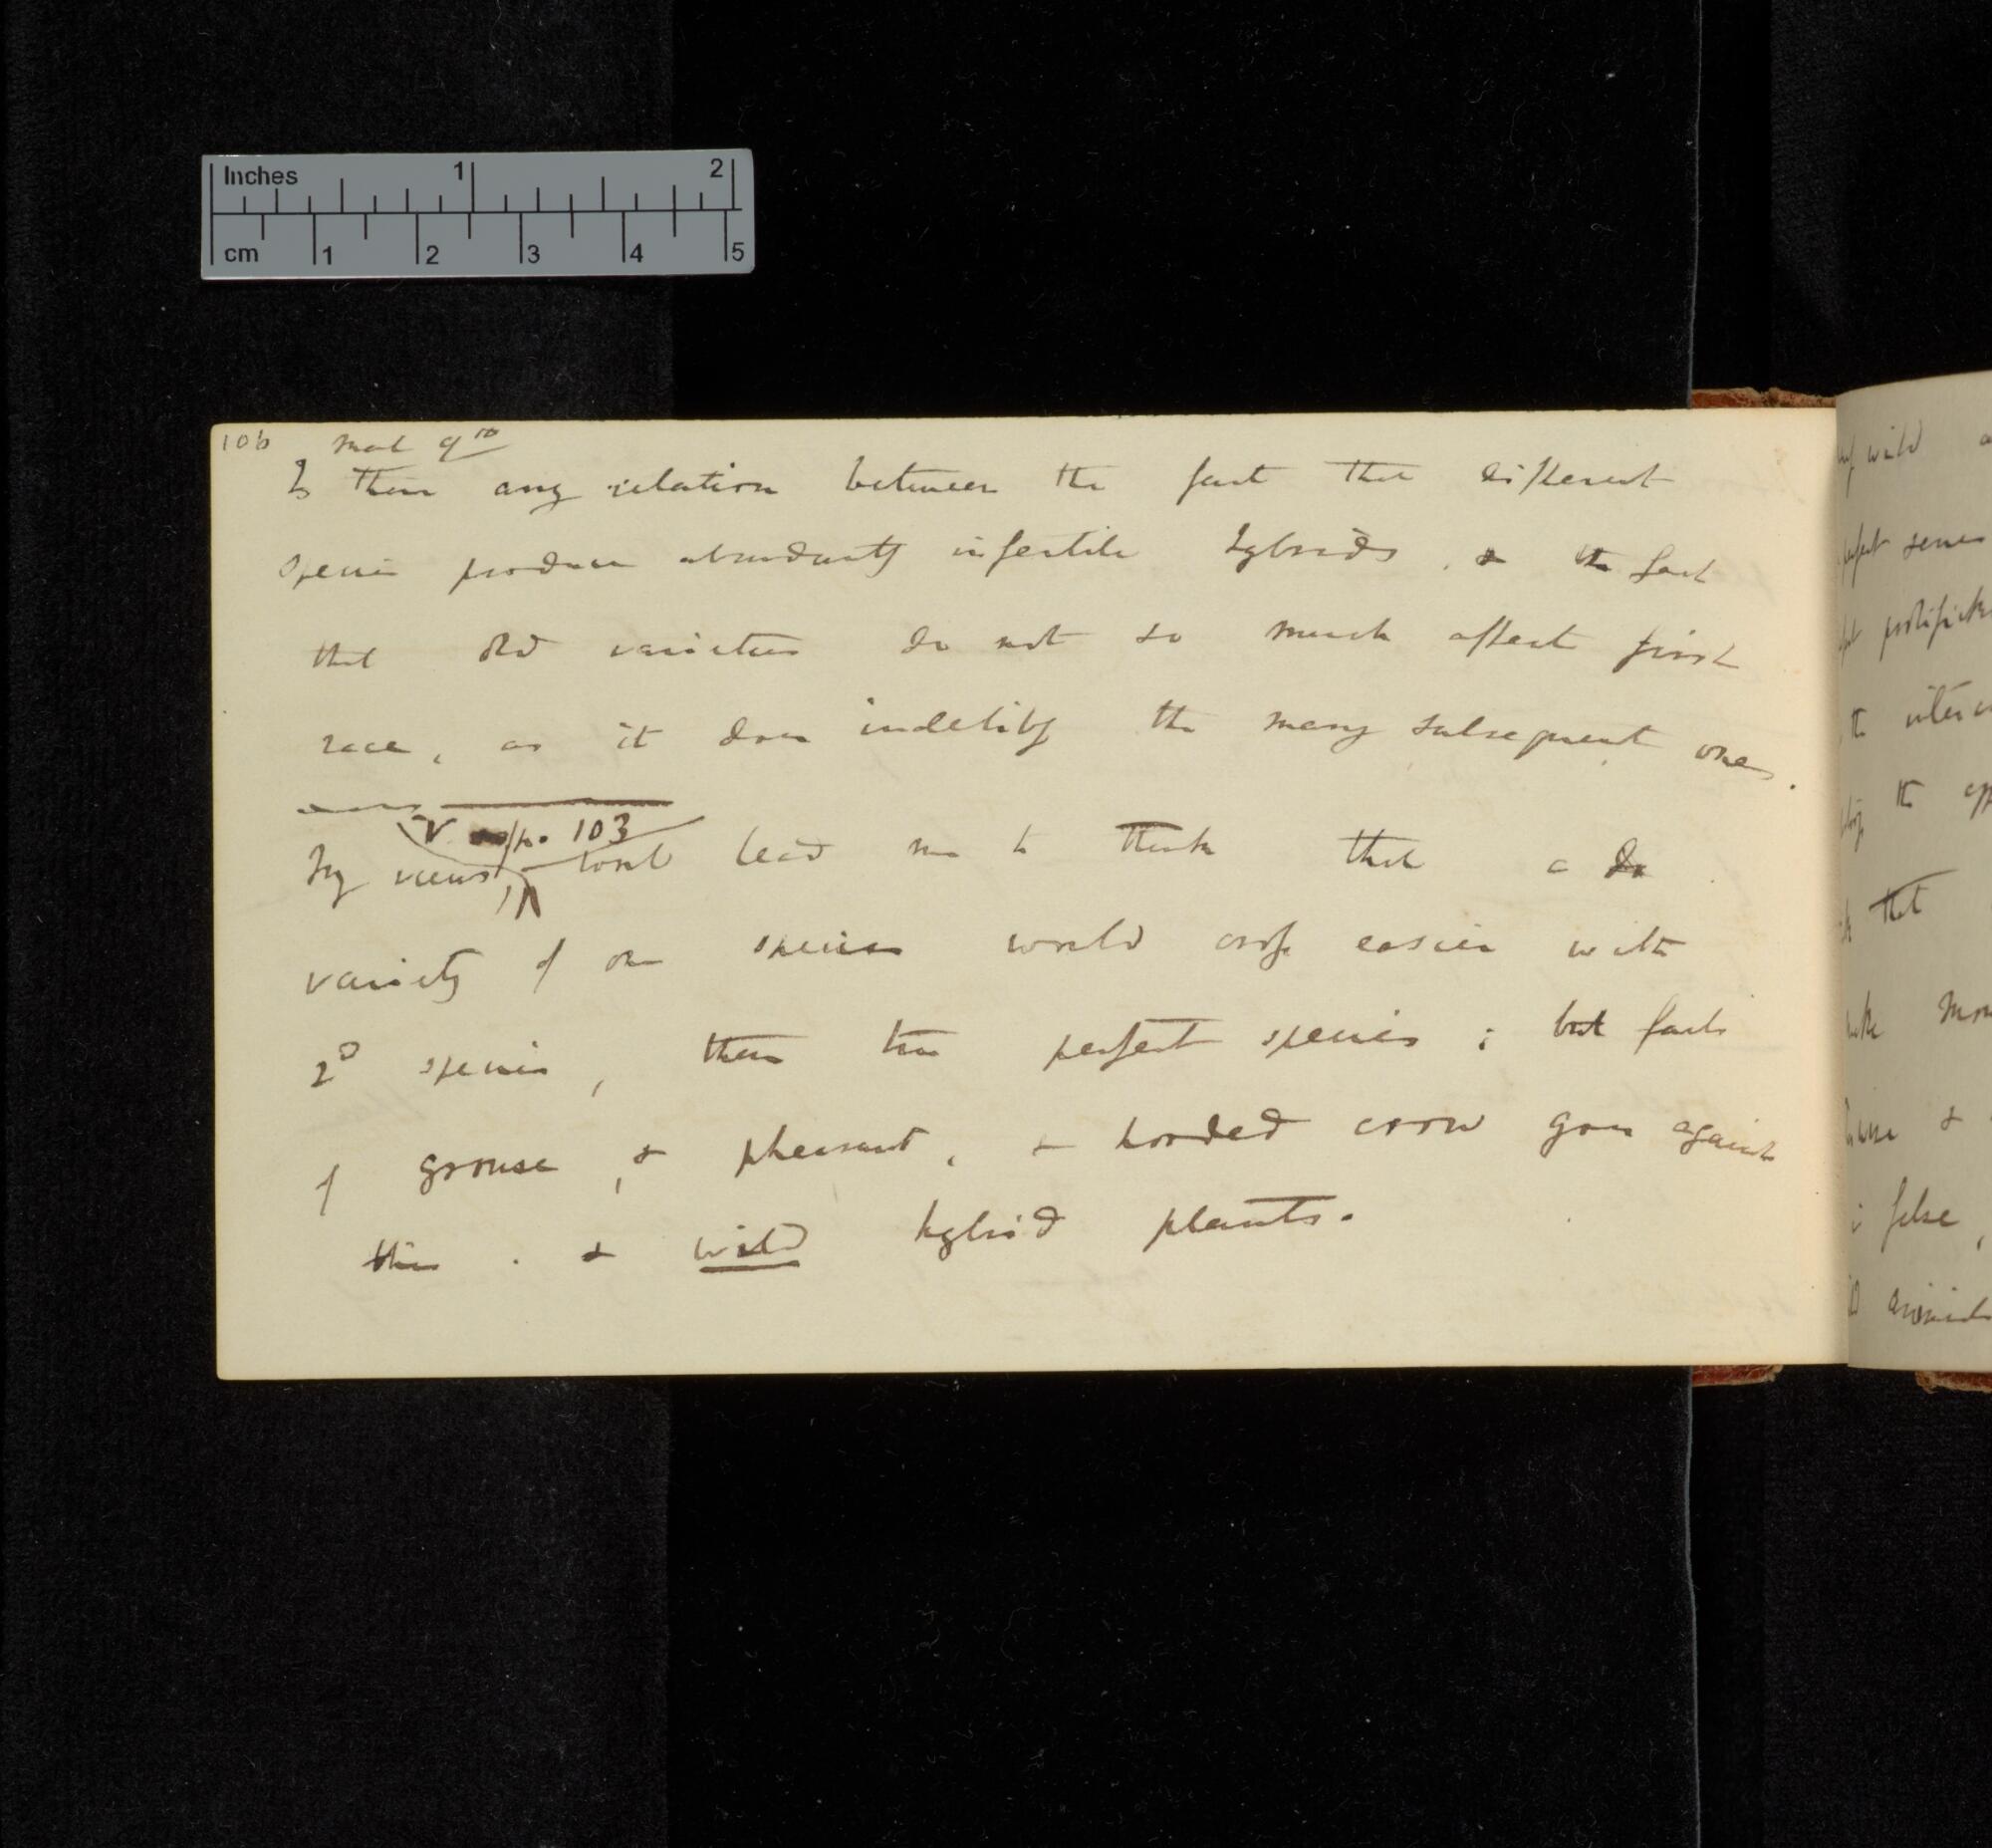 Inches 1 2
cm 1 2 3 4 5
106 Mah 9th
Is there any relation between the fact that different
species produce abundantly infertile hybrids, & the fact
that old varieties do not so much affect first
race, as it does indelibly the many subsequent ones.
V p. 103
My views, would lead me to think that a do
variety of one species would cross easier with
2d species, than two perfect species; but facts
of grouse, & pheasant, & hooded crow goes against
this. & wild hybrid plants.
wild
perfect
prolific
the
the
that
&
false,